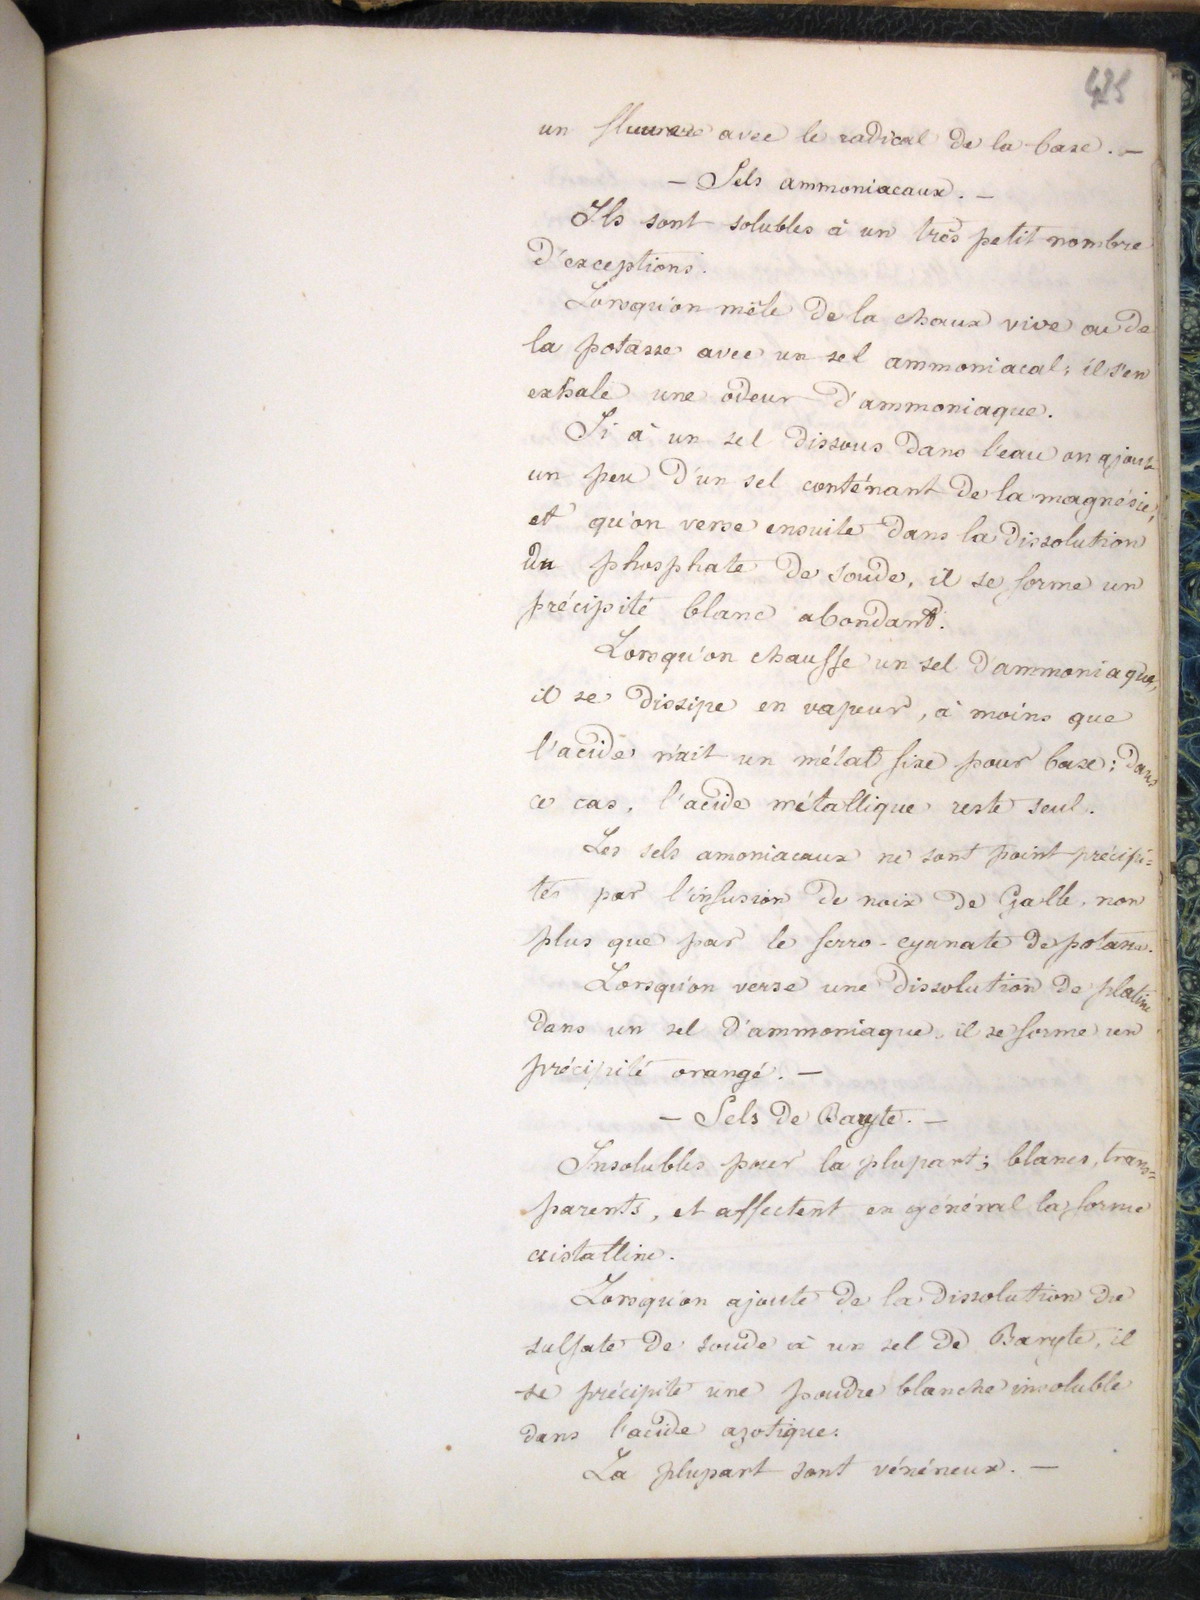 425
un fluorure avec le radical de la base. —
— Sels ammoniacaux. —
Ils sont solubles à un très petit nombre
d'exceptions.
Lorsqu'on mêle de la chaux vive ou de
la potasse avec un sel ammoniacal, il s'en
exhale une odeur d'ammoniaque.
Si à un sel dissous dans l'eau on ajoute
un peu d'un sel conténant de la magnésie,
et qu'on verse ensuite dans la dissolution
du phosphate de soude, il se forme un
précipité blanc abondant.
Lorsqu'on chauffe un sel d'ammoniaque,
il se dissipe en vapeur, à moins que
l'acide n'ait un métal fixe pour base; dans
ce cas, l'acide métallique reste seul.
Les sels amoniacaux ne sont point précipi=
tés par l'infusion de noix de Galle, non
plus que par le ferro-cyanate de potasse.
Lorsqu'on verse une dissolution de platine
dans un sel d'ammoniaque, il se forme un
précipité orangé. —
— Sels de Baryte. —
Insolubles pour la plupart; blancs, trans=
parents, et affectent en général la forme
cristalline.
Lorsqu'on ajoute de la dissolution de
sulfate de soude à un sel de Baryte, il
se précipite une poudre blanche insoluble
dans l'acide azotique.
La plupart sont vénéneux. —